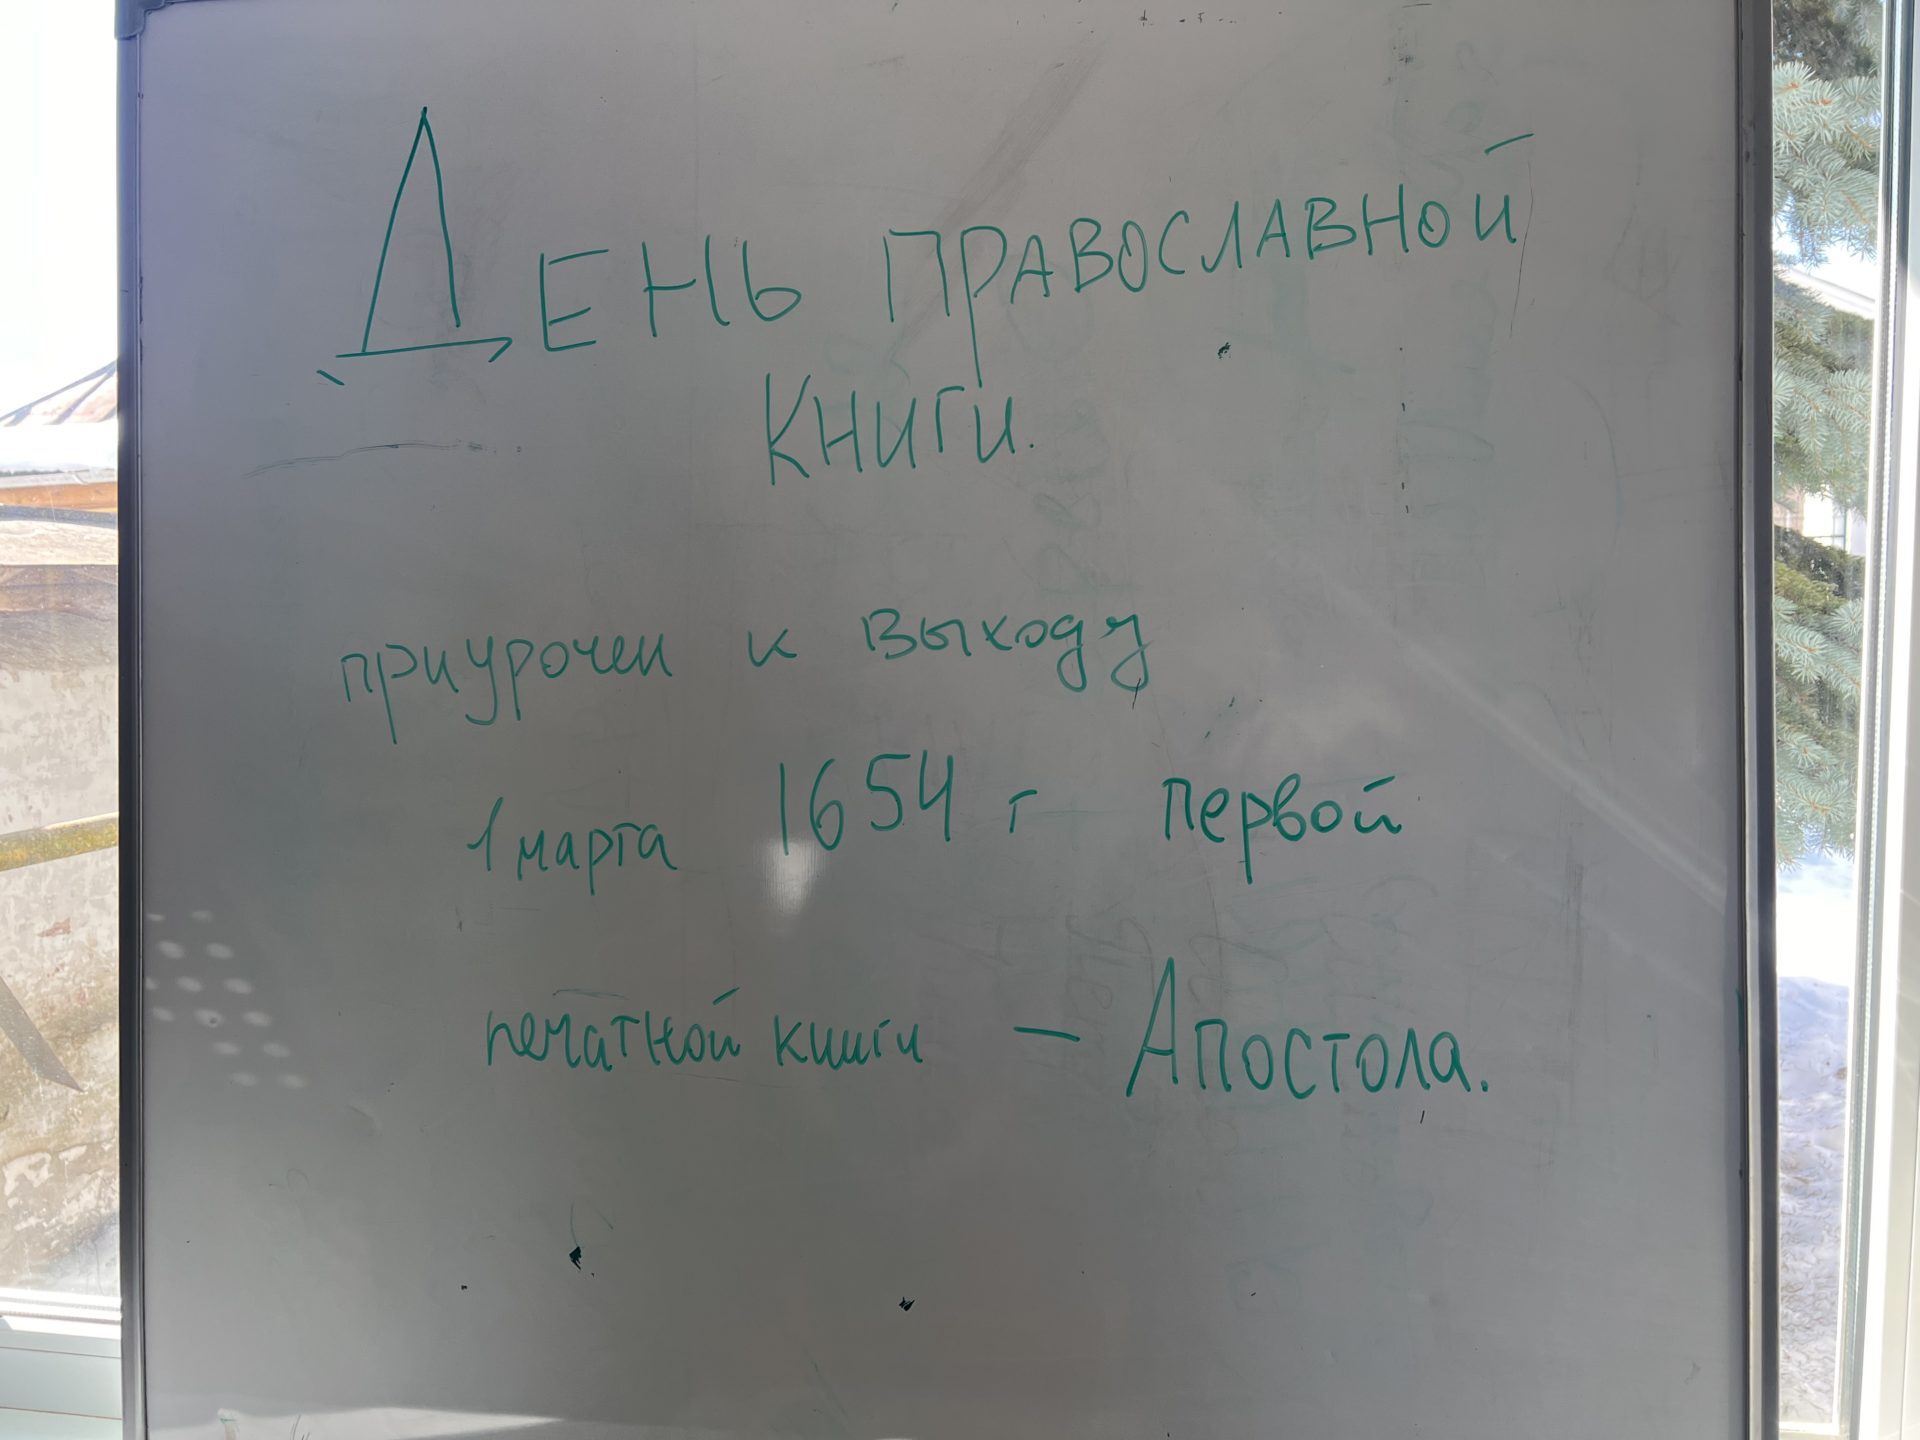 День православной
книги.
приурочен к выходу
1 марта 1654 г первой
печатной книги — Апостола.